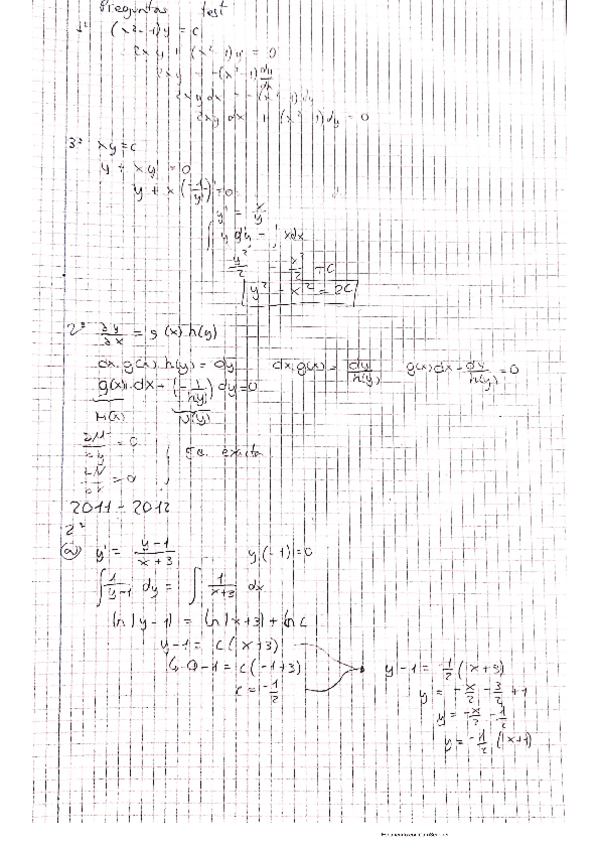 Preguntas test
1º (x²-1)y = c
2xy + (x²-1)y' = 0
2xy = -(x²-1) dy/dx
2xy dx = -(x²-1)dy
2xy dx + (x²-1)dy = 0
3º xy = c
y + xy' = 0
y + x(-1/y') = 0
y' = x/y
∫ y dy = ∫ x dx
y²/2 = x²/2 + C
y² - x² = 2C
2º ∂y/∂x = g(x) h(y)
dx g(x) h(y) = dy dx g(x) = dy/h(y) g(x)dx - dy/h(y) = 0
g(x) dx + (-1/h(y)) dy = 0
M(x) N(y)
∂M/∂y = 0
Ec. exacta
∂N/∂x = 0
2011 - 2012
2º
a) y' = (y-1)/(x+3) y(-1) = 0
∫ 1/(y-1) dy = ∫ 1/(x+3) dx
ln|y-1| = ln|x+3| + ln c
y-1 = c(x+3)
↳ 0-1 = c(-1+3)
c = -1/2
y-1 = -1/2 (x+3)
y = -x/2 - 3/2 + 1
y = -x/2 - 1/2
y = -1/2 (x+1)